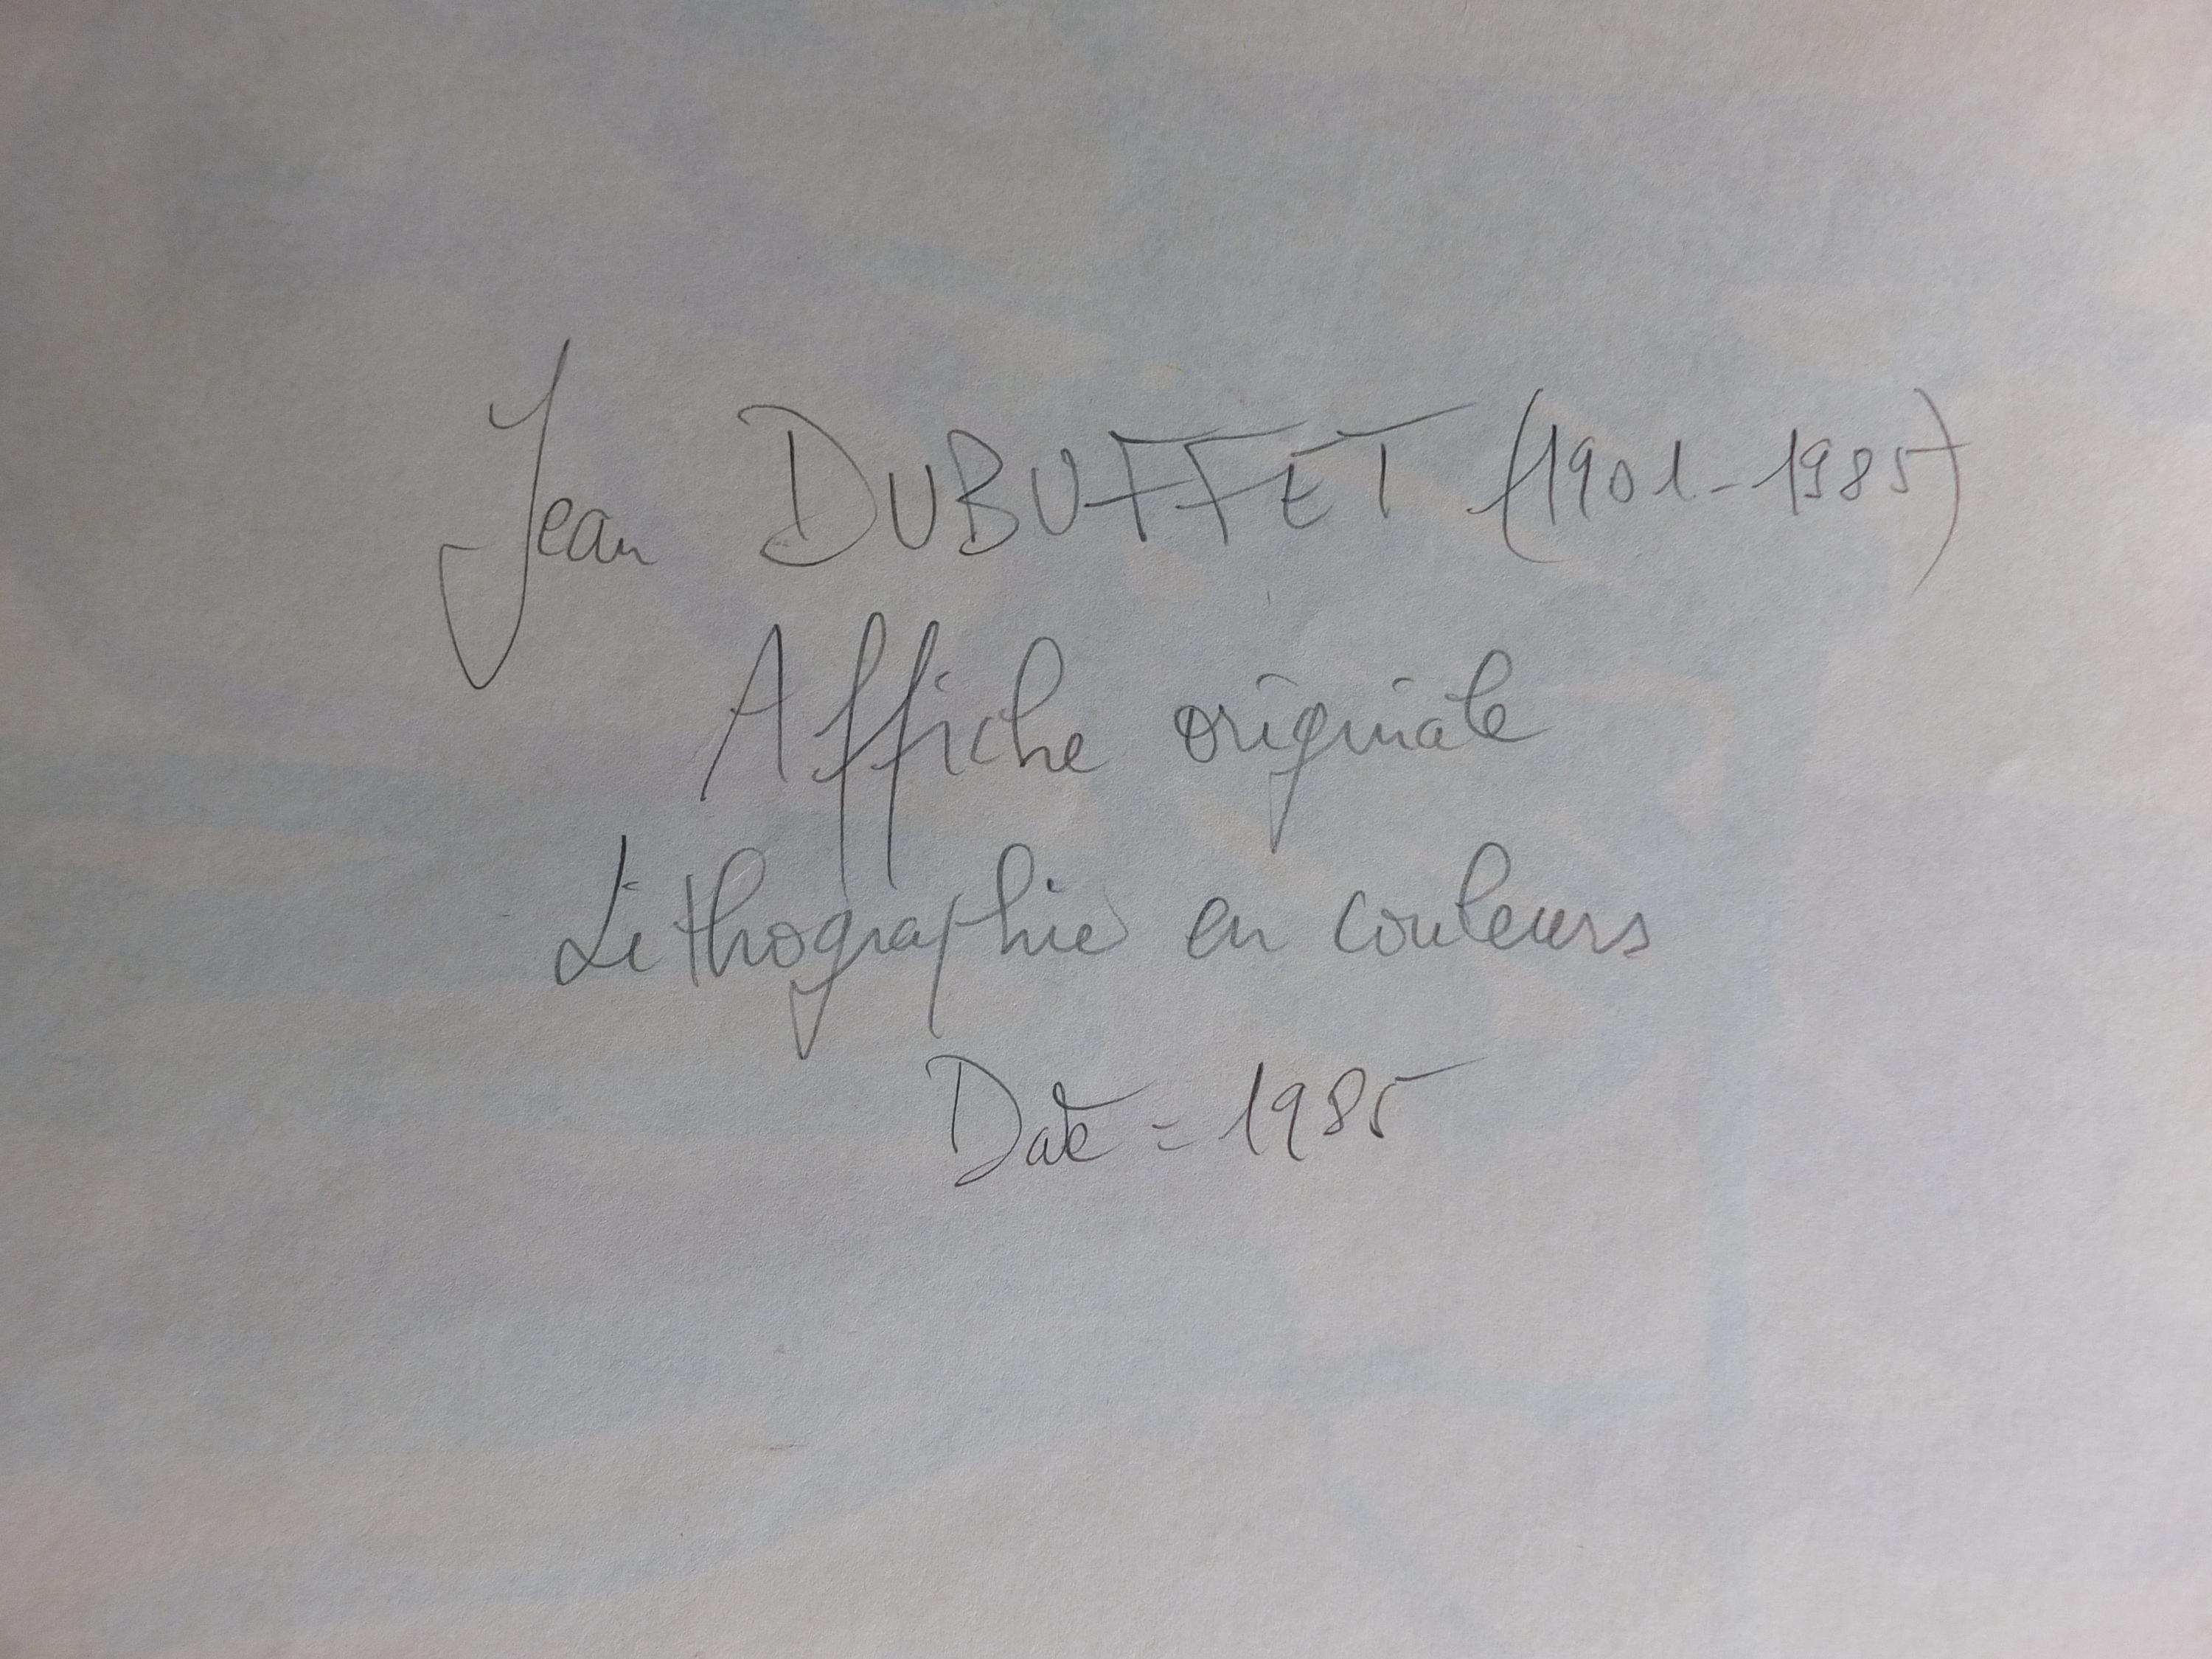 Jean DUBUFFET (1901-1985)
Affiche originale
Lithographie en couleurs
Date = 1985